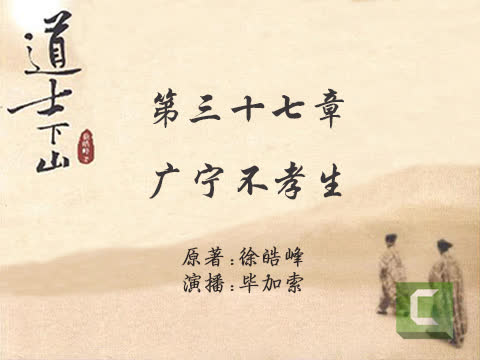 道士下山
徐皓峰 著
第三十七章
广宁不孝生
原著:徐皓峰
演播:毕加索
C